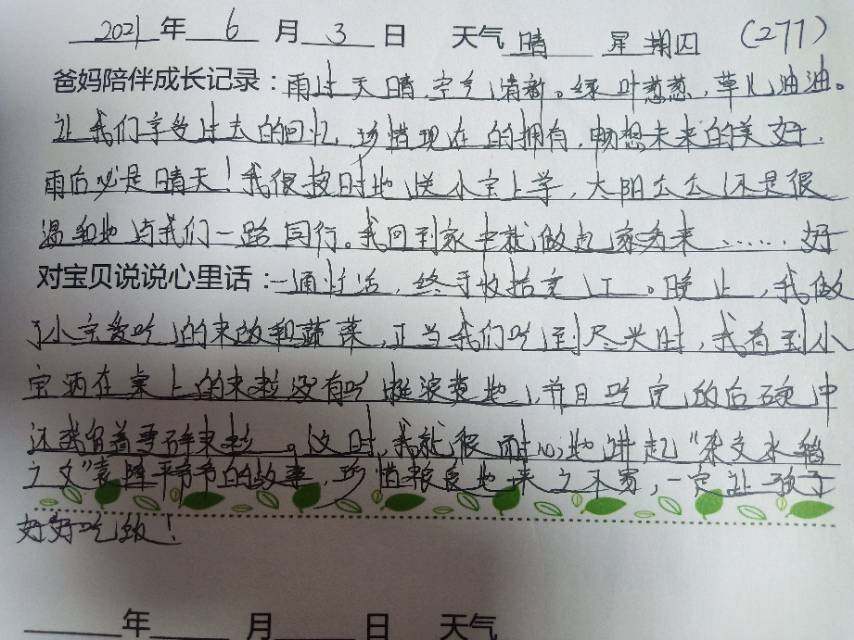 2021年 6 月 3 日 天气 晴 星期四 (277)
爸妈陪伴成长记录：雨过天晴，空气清新。绿叶葱葱，草儿油油。
让我们享受过去的回忆，珍惜现在的拥有，畅想未来的美好，
雨后必是晴天！我很按时地送小宝上学，太阳公公还是很
温和地与我们一路同行。我回到家中就做起家务来……好
对宝贝说说心里话：一通忙活，终于收拾完工。晚上，我做
了小宝爱吃的米饭和蔬菜，正当我们吃到尽兴时，我看到小
宝洒在桌上的米粒没有吃挺浪费地，并且吃完的后碗中
还残留着零碎米粒。这时，我就很耐心地讲起“杂交水稻
之父”袁隆平爷爷的故事，珍惜粮食地来之不易，一定让孩子
好好吃饭！
年 月 日 天气